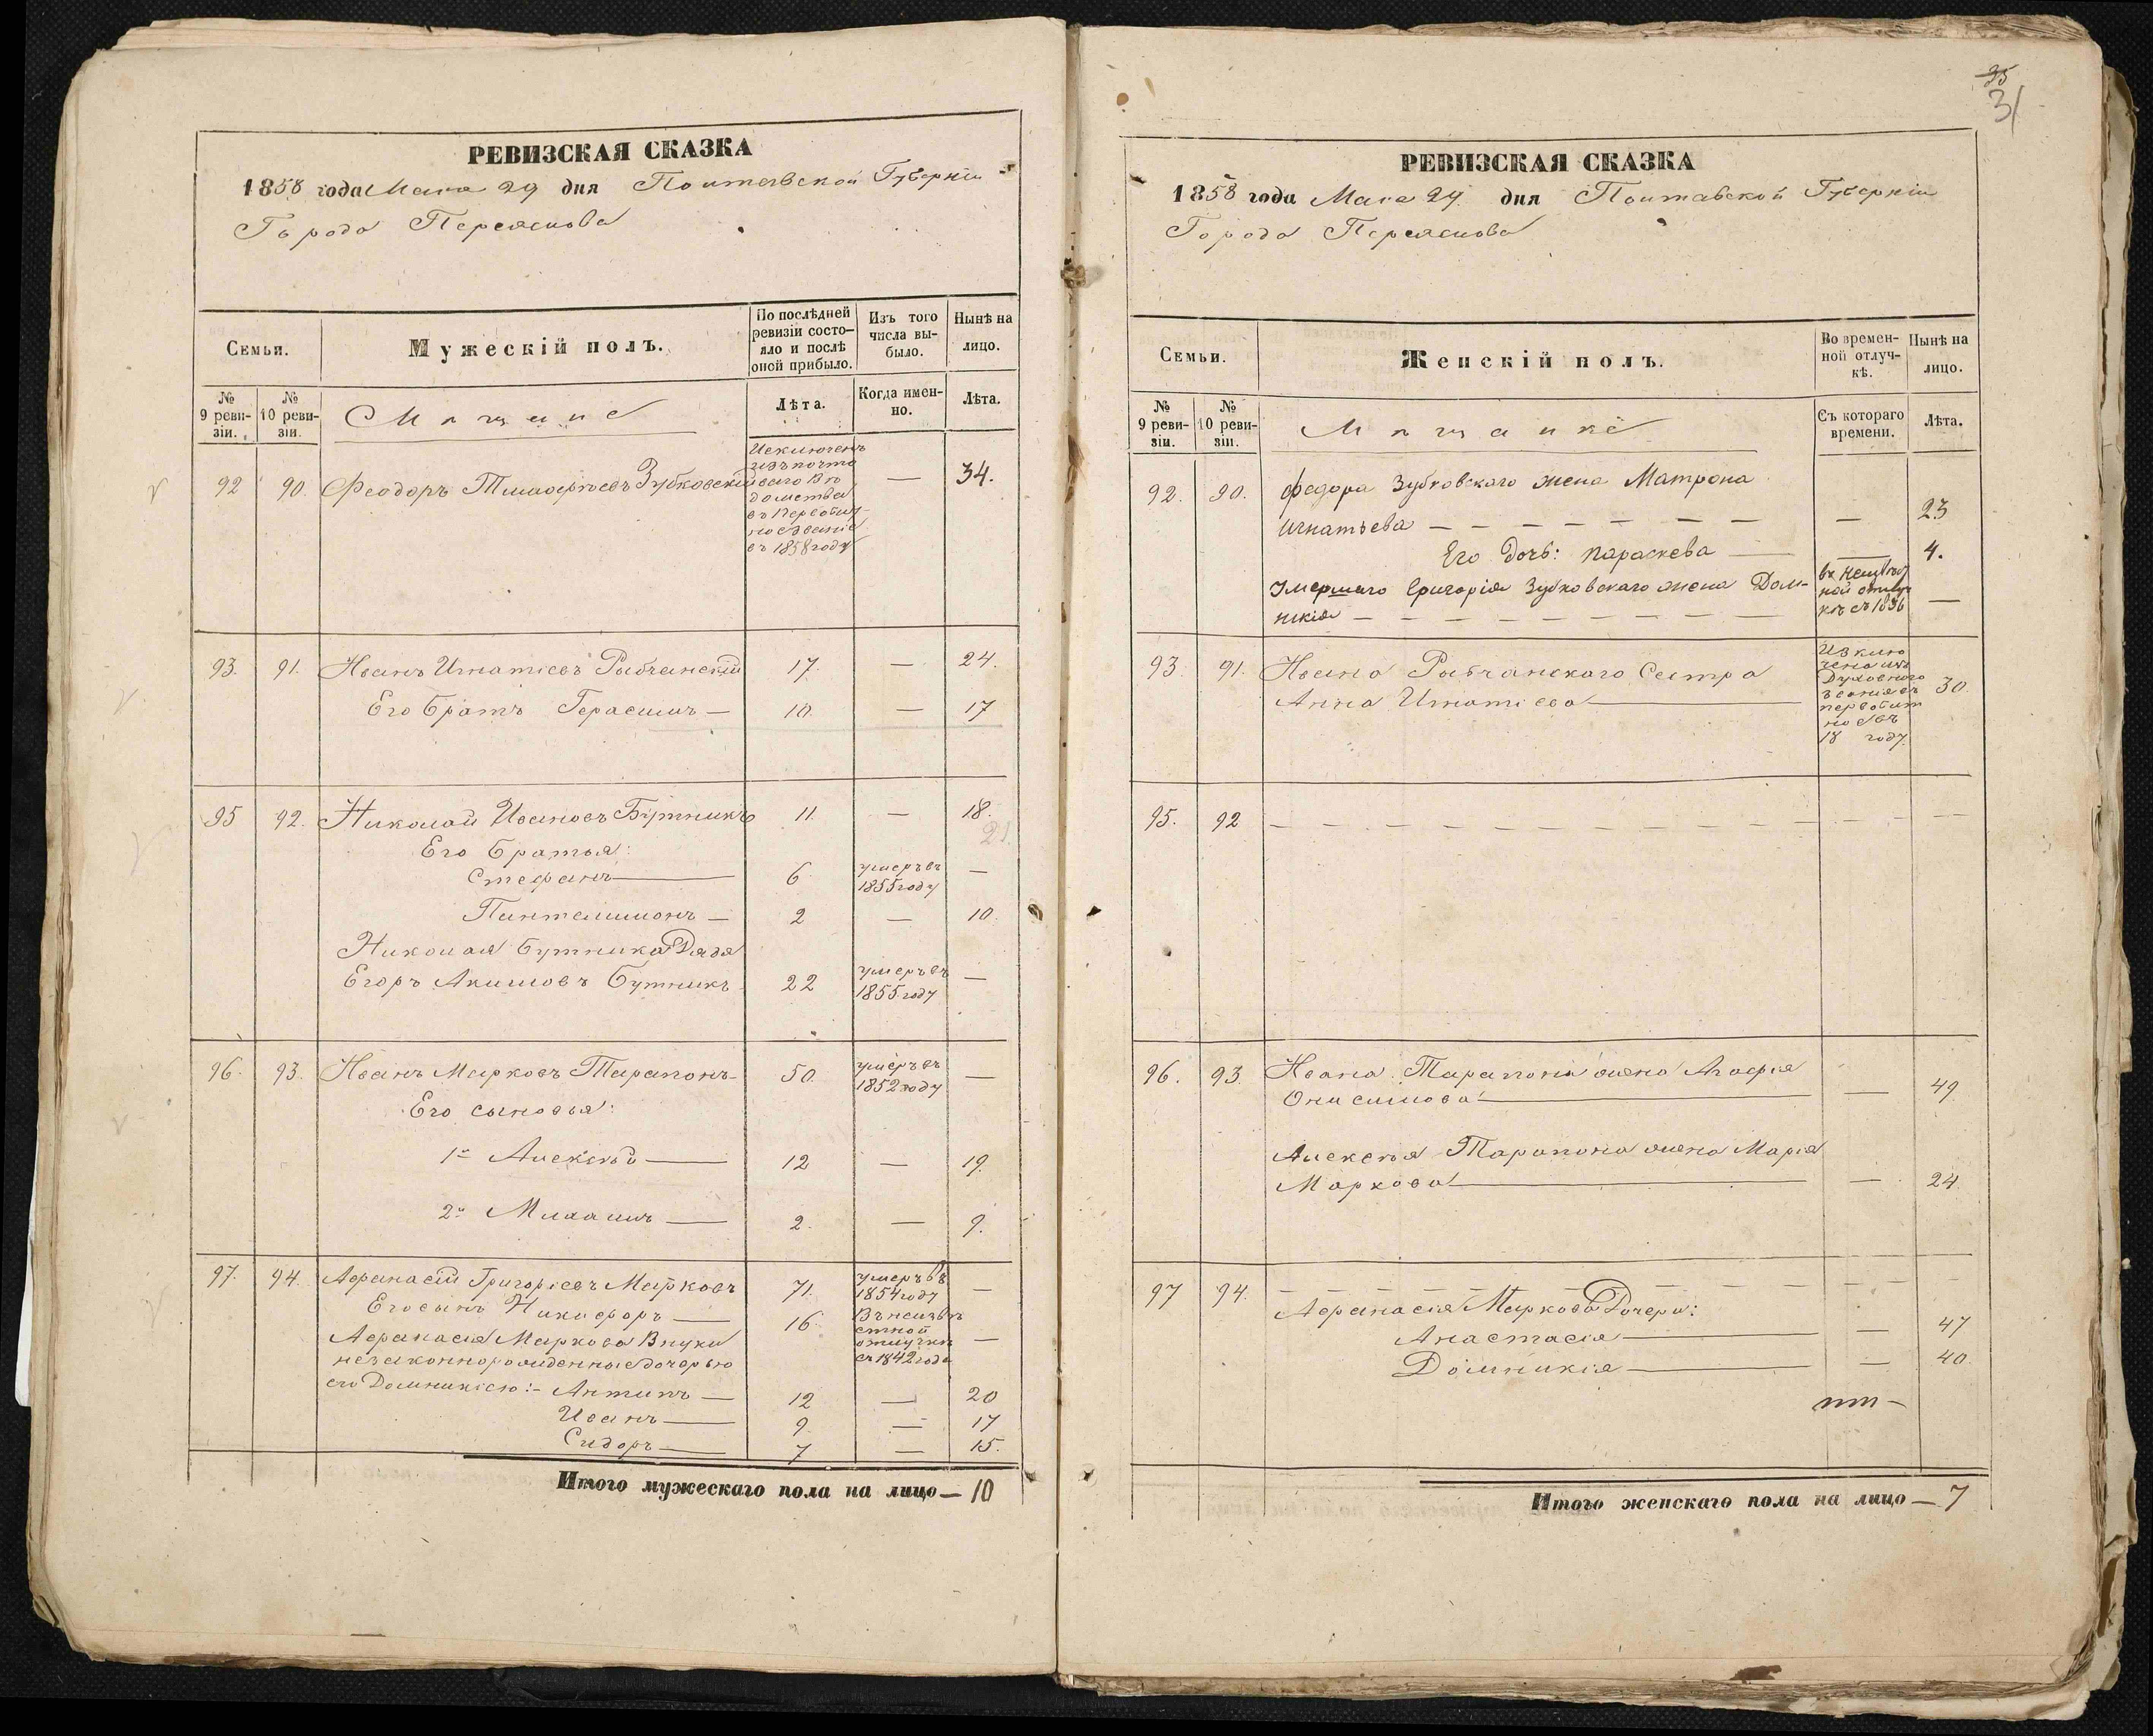 РЕВИЗСКАЯ СКАЗКА
1858 года Мая 29 дня Полтавской Губерніи
Города Переяслова
Семьи.
Мужескій полъ.
По послѣдней ревизіи состо-
яло и послѣ оной прибыло.
Изъ того числа вы-
было.
Нынѣ на лицо.
№ 9 реви-
зіи.
№ 10 реви-
зіи.
Мѣщане
Лѣта.
Когда имен-
но.
Лѣта.
92 90. Феодоръ Тимофѣевъ Зубковскій — 34.
Исключенъ
изъ почто
ваго Вѣ
домства
въ Первобыт
ное званіе
въ 1858 году
93. 91. Иванъ Игнатіевъ Рабчанскій 17. — 24.
Его Братъ Герасимъ — 10. — 17
95 92. Николай Ивановъ Бутникъ 11. — 18.
21.
Его Братья:
Стефанъ — 6 умеръ въ 1855 году —
Пантелимонъ — 2 — 10.
Николая Бутника Дядя
Егоръ Акимовъ Бутникъ 22 умеръ въ 1855 году —
96. 93. Иванъ Марковъ Тарапонъ 50. умеръ въ 1852 году —
Его сыновья:
1й Алексѣй — 12 — 19.
2й Михаилъ — 2. — 9.
97. 94. Афанасій Григоріевъ Марковъ 71. умеръ въ 1854 году —
Его сынъ Никифоръ — 16 Въ неизвѣ
стной
отлучкѣ
съ 1842 года —
Афанасія Маркова Внуки
незаконнорожденные дочерью
его Домникіею:- Антипъ — 12 — 20
Иванъ — 9. — 17
Сидоръ — 7 — 15.
Итого мужескаго пола на лицо — 10
35
31
РЕВИЗСКАЯ СКАЗКА
1858 года Мая 29 дня Полтавской Губерніи
Города Переяслова
Семьи.
Женскій полъ.
Во времен-
ной отлуч-
кѣ.
Нынѣ на лицо.
№ 9 реви-
зіи.
№ 10 реви-
зіи.
Мѣщанкѣ
Съ котораго времени.
Лѣта.
92. 90. Федора Зубковскаго жена Матрона
Игнатьева — — 23
Его Дочь: Параскева — — 4.
Умершаго Григорія Зубковскаго жена Дом-
никія — —
ной отлуч
кѣ съ 1836
93. 91. Ивана Рабчанскаго Сестра
Анна Игнатіева — 30.
Изклю
чена изъ
Духовного
званія въ
первобыт
ное въ
18 году.
95. 92 — — —
96. 93. Ивана Тарапона жена Агафія
Онисимова — — 49
Алексѣя Тарапона жена Марія
Маркова — — 24
97 94. — — —
Афанасія Маркова Дочери:
Анастасія — — 47
Домникія — — 40.
Итого женскаго пола на лицо — 7